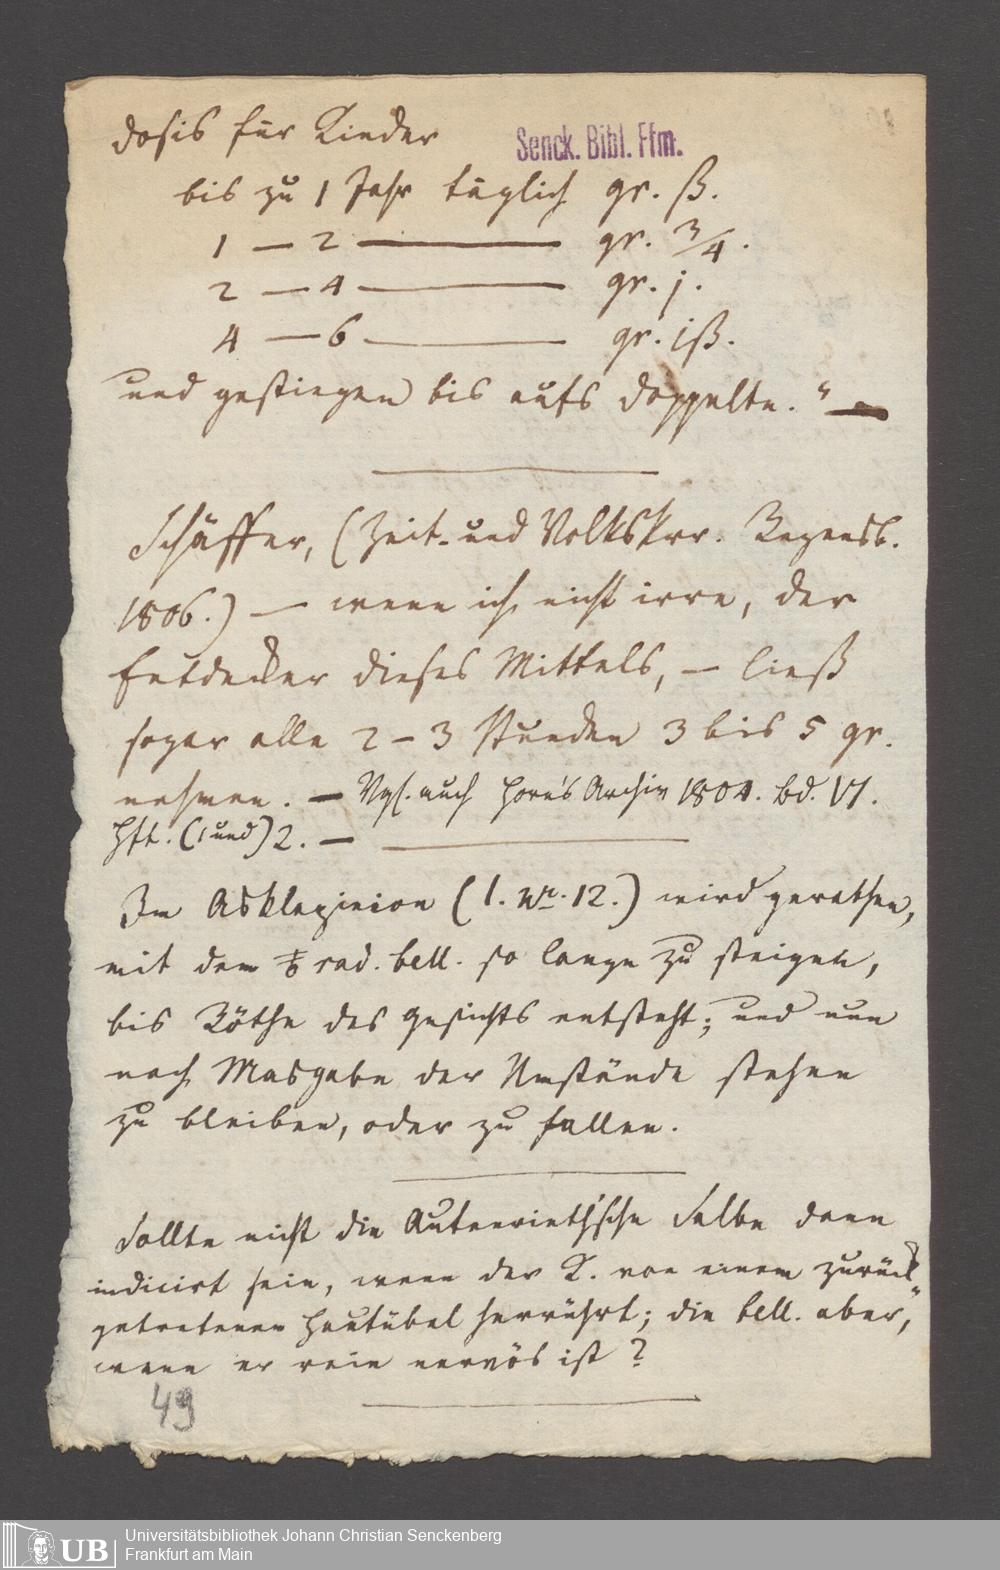 dosis für Kinder
Senck. Bibl. Ffm.
bis zu 1 Jahr täglich gr. ß.
1 — 2 ——— gr. 3/4.
2 — 4 ——— gr. j.
4 — 6 ——— gr. jß.
und gestiegen bis aufs doppelte." —
Schäffer, (Zeit- und Volkskrr. Regensb.
1806.) — wenn ich nicht irre, der
Entdecker dieses Mittels, — ließ
sogar alle 2 – 3 Stunden 3 bis 5 gr.
nehmen. — Vgl. auch Horn's Archiv 1804. bd. VI.
Hft. (1 und) 2. —
Im Asklepieion (1. No. 12.) wird gerathen,
mit dem rad. bell. so lange zu steigen,
bis Röthe des Gesichts entsteht; und nun
nach Masgabe der Umstände stehen
zu bleiben, oder zu fallen.
Sollte nicht die Autenrieth'sche Salbe dann
indicirt sein, wenn der K. von einem zurück-
getretenen Hautübel herrührt; die bell. aber,
wenn er rein nervös ist?
49
UB
Universitätsbibliothek Johann Christian Senckenberg
Frankfurt am Main